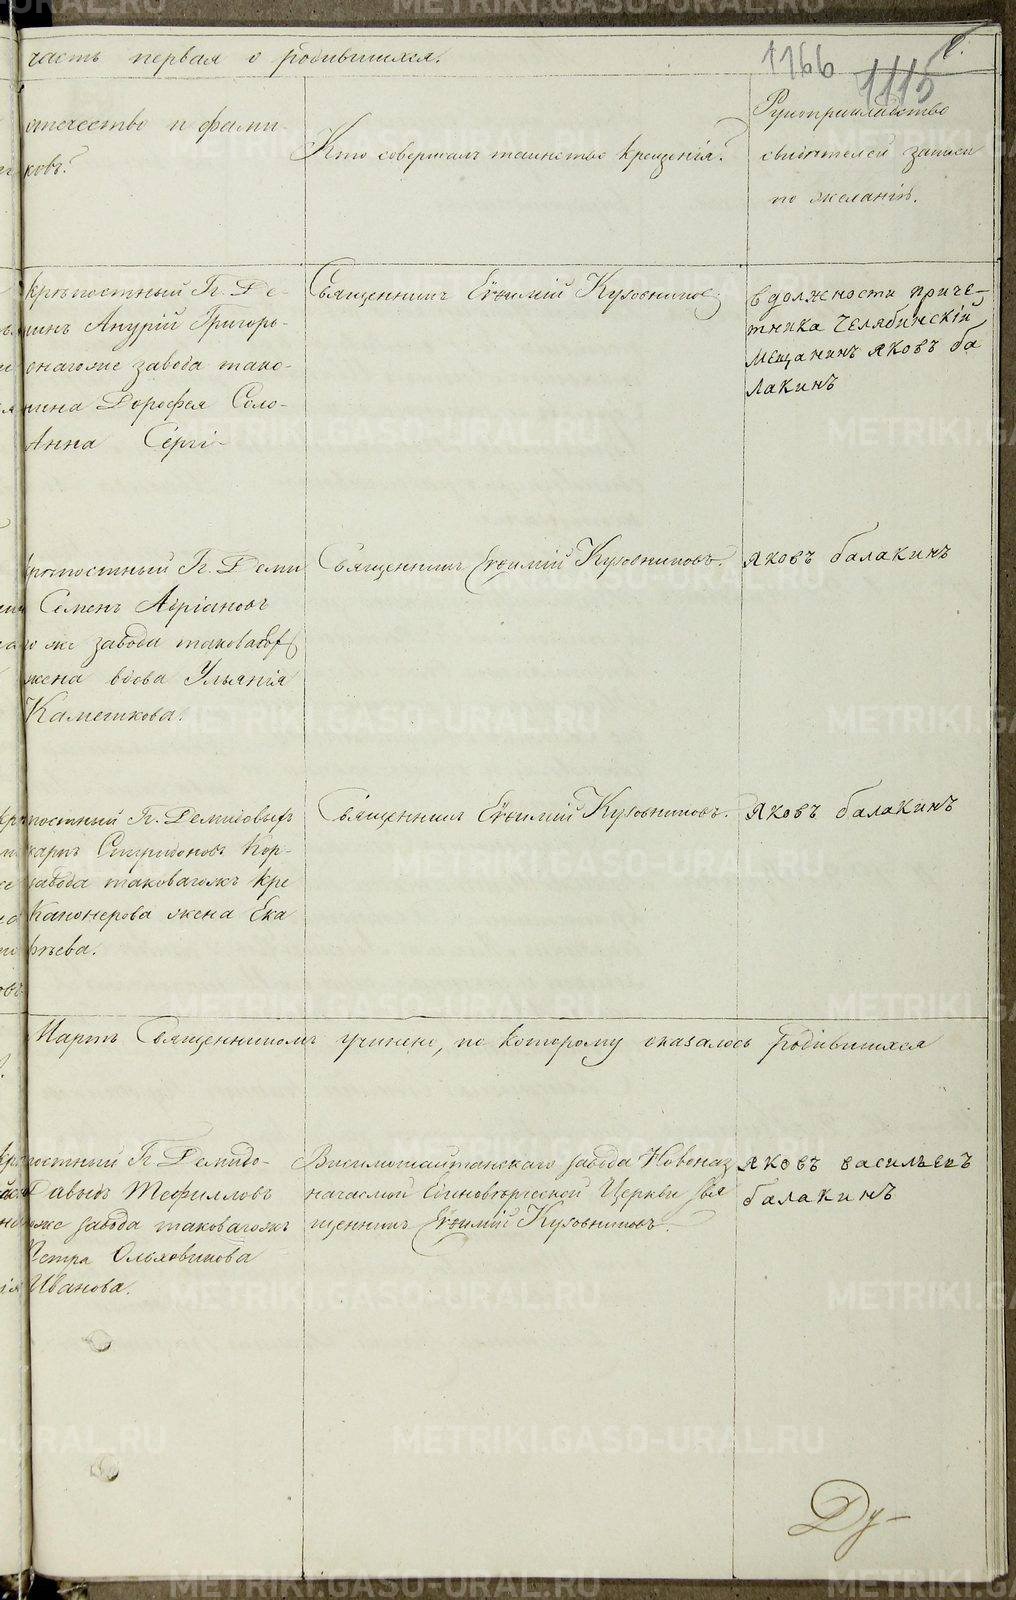 часть первая о родившихся.
1166
1115
отечество и фами-
ковъ?
Кто совершалъ таинство крещенія?
Рукоприкладство
свидѣтелей записи
по желанію.
крѣпостный Г. Де-
Анурій Григорь-
онагоже завода тако-
Дорофея Соло-
Анна Сергі-
Священникъ Евѳимій Кузовниковъ
в должности приче-
тника Челябинскій
мещанинъ Яковъ ба
лакинъ
крѣпостный Г. Деми
Семенъ Адріановъ
же завода таковагож
жена вдова Ульянія
Камешкова.
Священникъ Евѳимій Кузовниковъ.
Яковъ балакинъ
постный Г. Демидовыхъ
Спиридоновъ Кор-
завода таковагожъ кре
Канонерова жена Ека
фѣева.
Священникъ Евѳимій Кузовниковъ.
Яковъ балакинъ
Мартъ Священникомъ учинено, по которому оказалось родившихся
постный Г. Демидо-
Давыдъ Теѳилловъ
оже завода таковагожъ
Петра Ольховикова
Иванова.
Висимошайтанскаго завода Новоназ
начаемой Единоверческой Церкви Свя
щенникъ Евѳимій Кузовниковъ.
Яковъ васильевъ
балакинъ
Ду-
METRIKI.GASO-URAL.RU